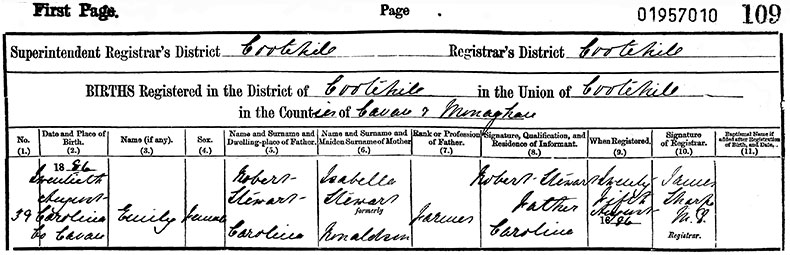 First Page. Page 01957010 109
Superintendent Registrar's District Cootehill Registrar's District Cootehill
BIRTHS Registered in the District of Cootehill in the Union of Cootehill
in the Counties of Cavan & Monaghan
No. (1.) Date and Place of Birth. (2.) Name (if any). (3.) Sex. (4.) Name and Surname and Dwelling-place of Father. (5.) Name and Surname and Maiden Surname of Mother (6.) Rank or Profession of Father. (7.) Signature, Qualification, and Residence of Informant. (8.) When Registered. (9.) Signature of Registrar. (10.) Baptismal Name if added after Registration of Birth, and Date. (11.)
39 1886 Twentieth August Carolina Co Cavan Emily Female Robert Stewart Carolina Isabella Stewart formerly Ronaldson Farmer Robert Stewart Father Carolina Twenty Fifth August 1886 James Sharpe Registrar.